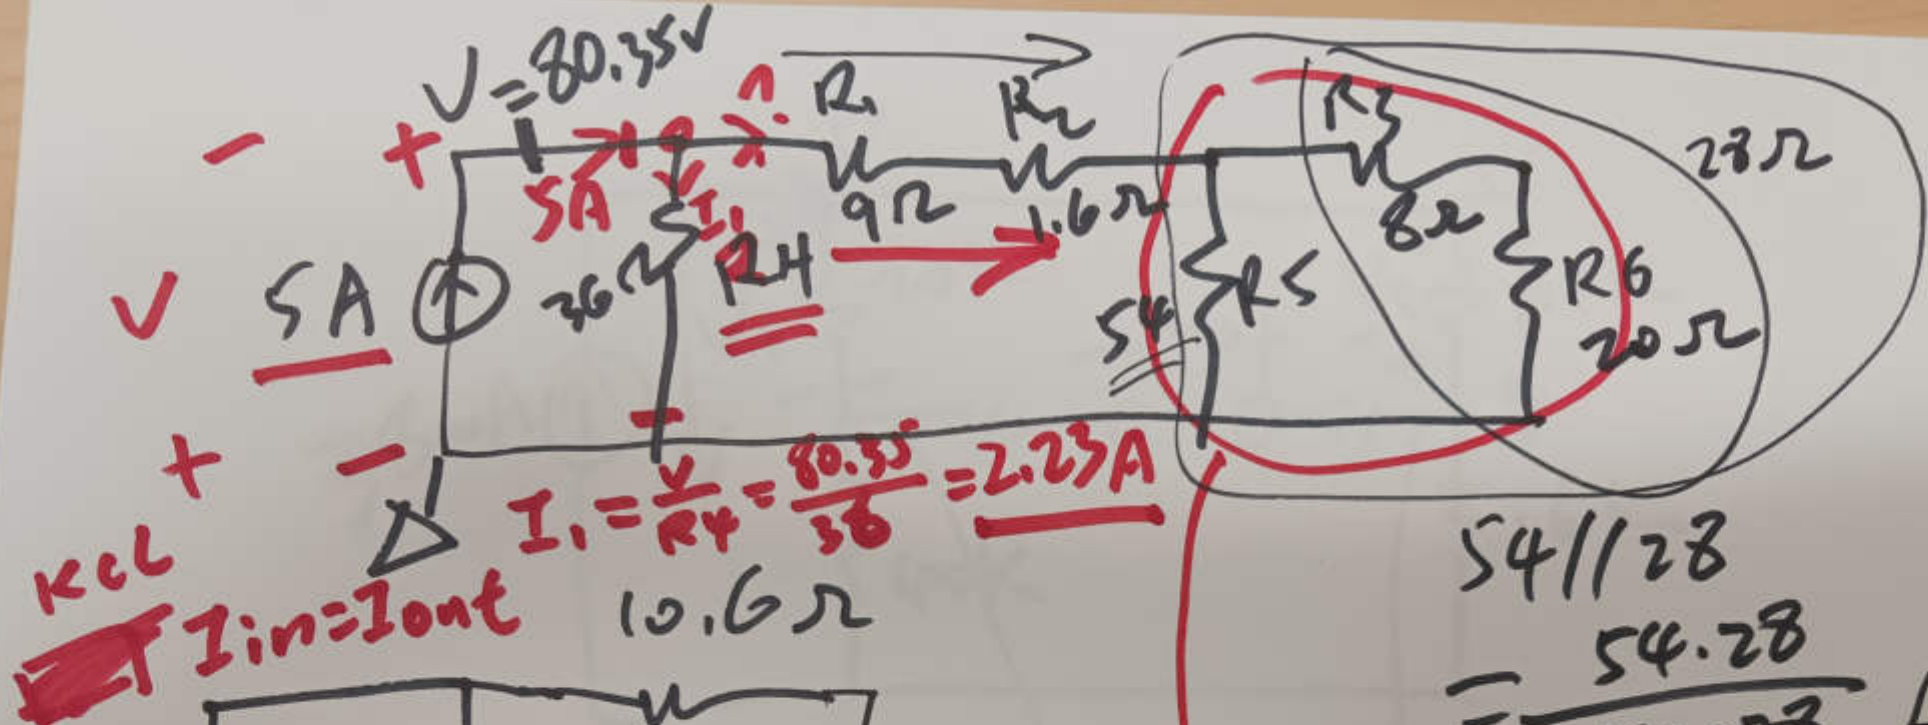 V = 80.35V
- +
R1 R2 R3
28Ω
5A I1
9Ω 1.6Ω 8Ω
V 5A 36Ω R4
54 R5 R6
20Ω
+ - -
I1 = V/R4 = 80.35/36 = 2.23A
KCL
Iin=Iout
10.6Ω
54//28
= 54.28